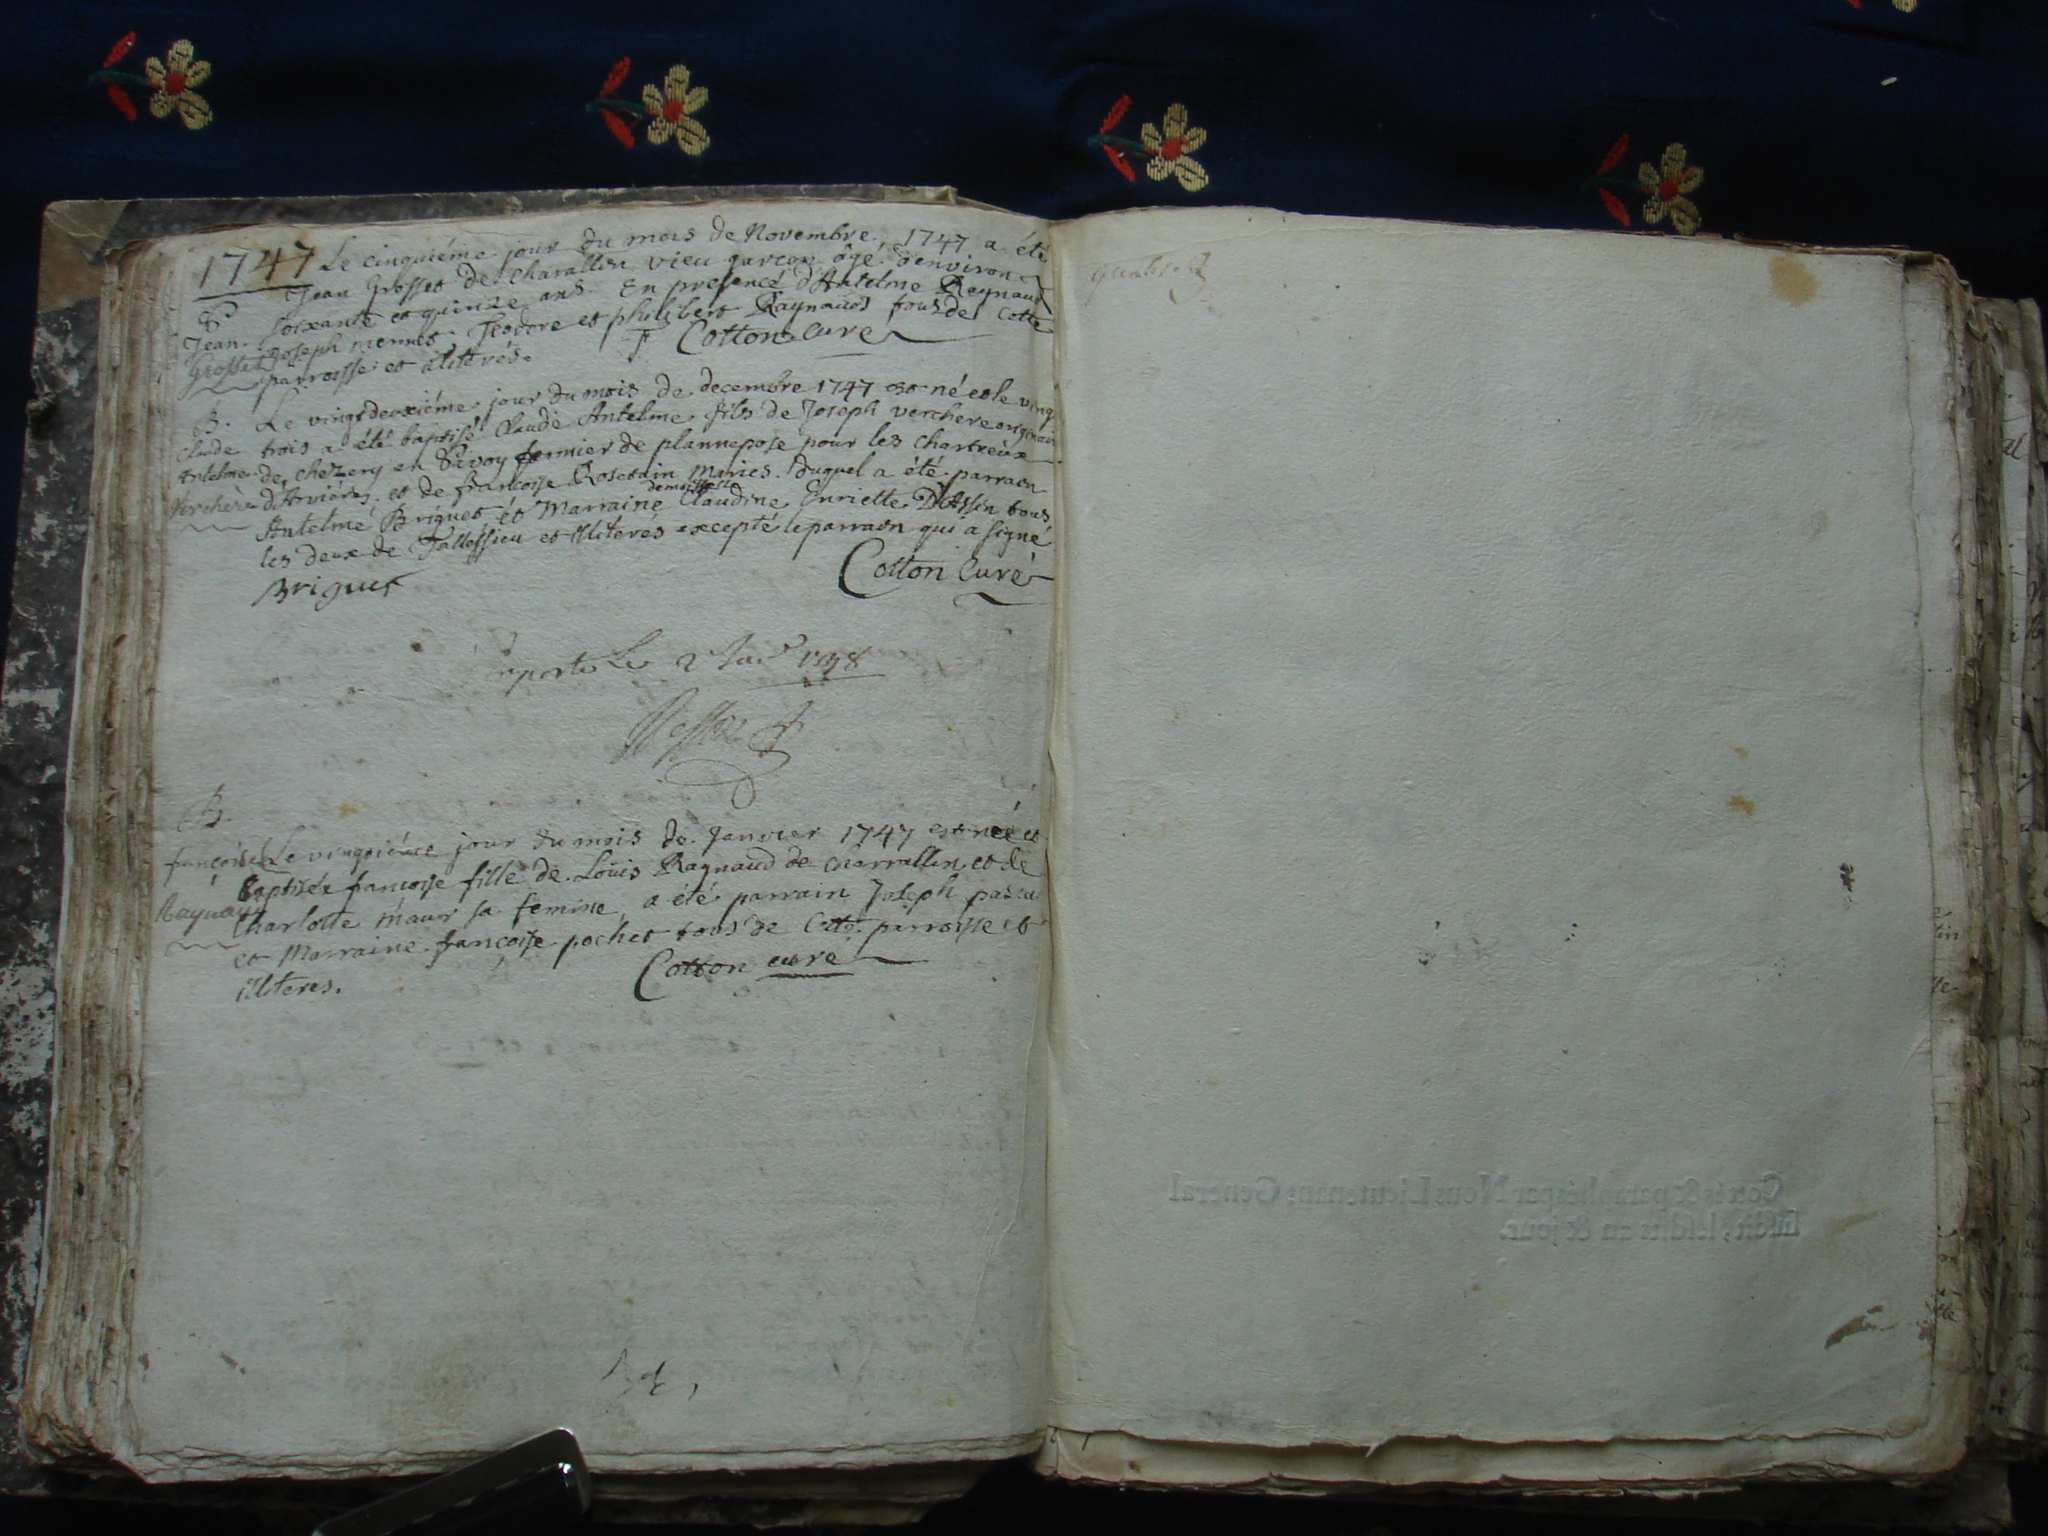 1747 Le cinquiéme jour du mois de Novembre 1747 a été
Jean Grosset de charallin vieu garcon âgé d'environ
S
soixante et quinze ans. En presence d'Antelme Reynaud
Jean
Joseph mennet, Teodore et philibert Raynaud tous de Cette
Grosset
parroisse et illiterés.
Cotton Curé
B. Le vingt deuxiéme jour du mois de decembre 1747 est né et le vingt
Claude trois a été baptisé Claude Antelme fils de Joseph verchere originaire
Antelme de chezery en Savoy fermier de plannepose pour les chartreux
Verchere d'Arviéres et de francoise Rosetain Mariés. duquel a été parrain
Antelme Briguet et Marraine demoiselle Claudine Enriette D'Assin tous
les deux de Tallessieu et illiterés excepté le parrain qui a signé
Briguet Cotton Curé
aporté Le 2 Jan 1748
B.
francoise Le vingtiéme jour du mois de Janvier 1747 est née et
baptisée francoise fille de Loüis Raynaud de charrallin et de
Raynaud
Charlotte maur sa femme, a été parrain Joseph
et Marraine francoise pochet tous de Cette parroisse et
illiteres. Cotton curé
Cottés & paraphés par Nous Lieutenant General
susdit, lesdits an & jour.